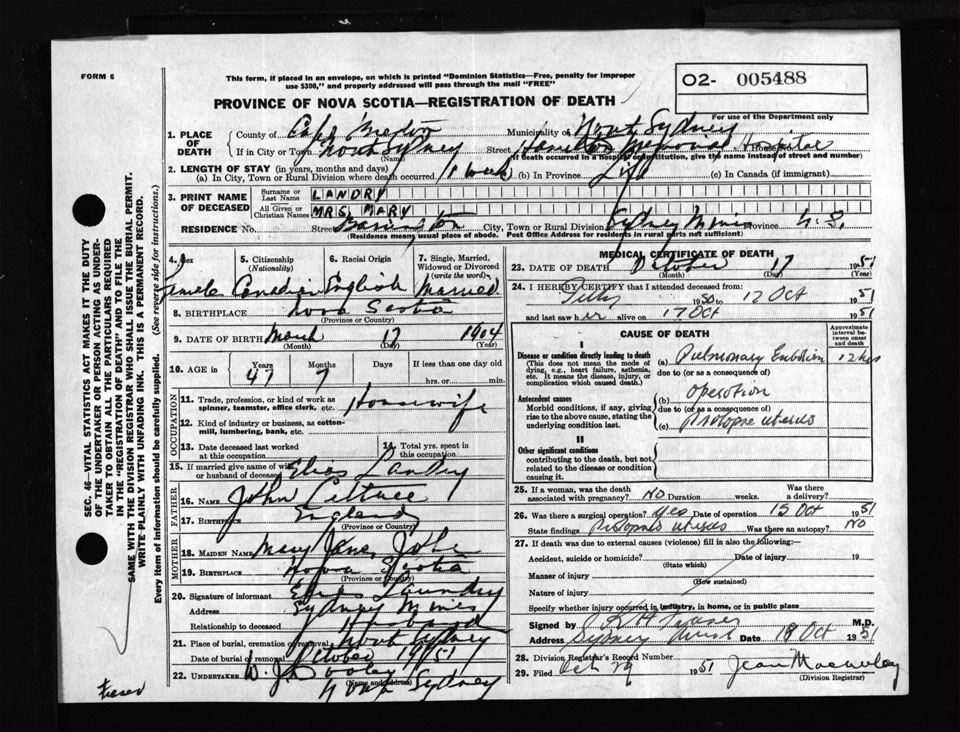 FORM 6
This form, if placed in an envelope, on which is printed "Dominion Statistics—Free, penalty for improper
use $300," and properly addressed will pass through the mail "FREE"
O2- 005488
For use of the Department only
PROVINCE OF NOVA SCOTIA—REGISTRATION OF DEATH
1. PLACE OF DEATH
County of Cape Breton Municipality of North Sydney
If in City or Town North Sydney (Name) Street Hamilton Memorial Hospital
(If death occurred in a hospital or institution, give the name instead of street and number)
2. LENGTH OF STAY (in years, months and days)
(a) In City, Town or Rural Division where death occurred 1 week (b) In Province Life (c) In Canada (if immigrant)
3. PRINT NAME OF DECEASED
Surname or Last Name LANDRY
All Given or Christian Names MRS. MARY
RESIDENCE No. Street City, Town or Rural Division Sydney Mines Province N.S.
(Residence means usual place of abode. Post Office Address for residents in rural parts not sufficient)
4. Sex Female
5. Citizenship (Nationality) Canadian
6. Racial Origin English
7. Single, Married, Widowed or Divorced (write the word) Married
8. BIRTHPLACE Nova Scotia
(Province or Country)
9. DATE OF BIRTH March 17 1904
(Month) (Day) (Year)
10. AGE in Years 47 Months 7 Days If less than one day
hrs. or min.
OCCUPATION
11. Trade, profession, or kind of work as spinner, teamster, office clerk, etc. Housewife
12. Kind of industry or business, as cotton-mill, lumbering, bank, etc.
13. Date deceased last worked at this occupation
14. Total yrs. spent in this occupation
15. If married give name of wife or husband of deceased Landry
FATHER
16. NAME John
17. BIRTHPLACE England
(Province or Country)
MOTHER
18. MAIDEN NAME Mary Jane
19. BIRTHPLACE Nova Scotia
(Province or Country)
20. Signature of informant
Address Sydney Mines
Relationship to deceased Husband
21. Place of burial, cremation or removal North Sydney
Date of burial or removal October 19/51
22. UNDERTAKER W. J. Dooley
(Name and Address) North Sydney
MEDICAL CERTIFICATE OF DEATH
23. DATE OF DEATH October 17 1951
(Month) (Day) (Year)
24. I HEREBY CERTIFY that I attended deceased from:
1950 to 17 Oct 1951
and last saw her alive on 17 Oct 1951
CAUSE OF DEATH
Approximate interval between onset and death
I
Disease or condition directly leading to death (a) Pulmonary Embolism 12 hrs
(This does not mean the mode of dying, e.g., heart failure, asthenia, etc. It means the disease, injury, or complication which caused death.)
due to (or as a consequence of)
Antecedent causes (b) Operation
Morbid conditions, if any, giving rise to the above cause, stating the underlying condition last.
due to (or as a consequence of)
(c) Prolapse uterus
II
Other significant conditions
contributing to the death, but not related to the disease or condition causing it.
25. If a woman, was the death associated with pregnancy? NO Duration weeks. Was there a delivery?
26. Was there surgical operation? yes Date of operation 15 Oct 1951
State findings uterus Was there an autopsy? NO
27. If death was due to external causes (violence) fill in also the following:—
Accident, suicide or homicide? (State which) Date of injury 19
Manner of injury
(How sustained)
Nature of injury
Specify whether injury occurred in industry, in home, or in public place
Signed by M.D.
Address Sydney Mines Date 18 Oct 1951
28. Division Registrar's Record Number
29. Filed Oct 29 1951
(Division Registrar)
SEC. 46—VITAL STATISTICS ACT MAKES IT THE DUTY
OF THE UNDERTAKER OR PERSON ACTING AS UNDER-
TAKER TO OBTAIN ALL THE PARTICULARS REQUIRED
IN THE "REGISTRATION OF DEATH" AND TO FILE THE
SAME WITH THE DIVISION REGISTRAR WHO SHALL ISSUE THE BURIAL PERMIT.
WRITE PLAINLY WITH UNFADING INK. THIS IS A PERMANENT RECORD.
Every item of information should be carefully supplied. (See reverse side for instructions.)
Fraser